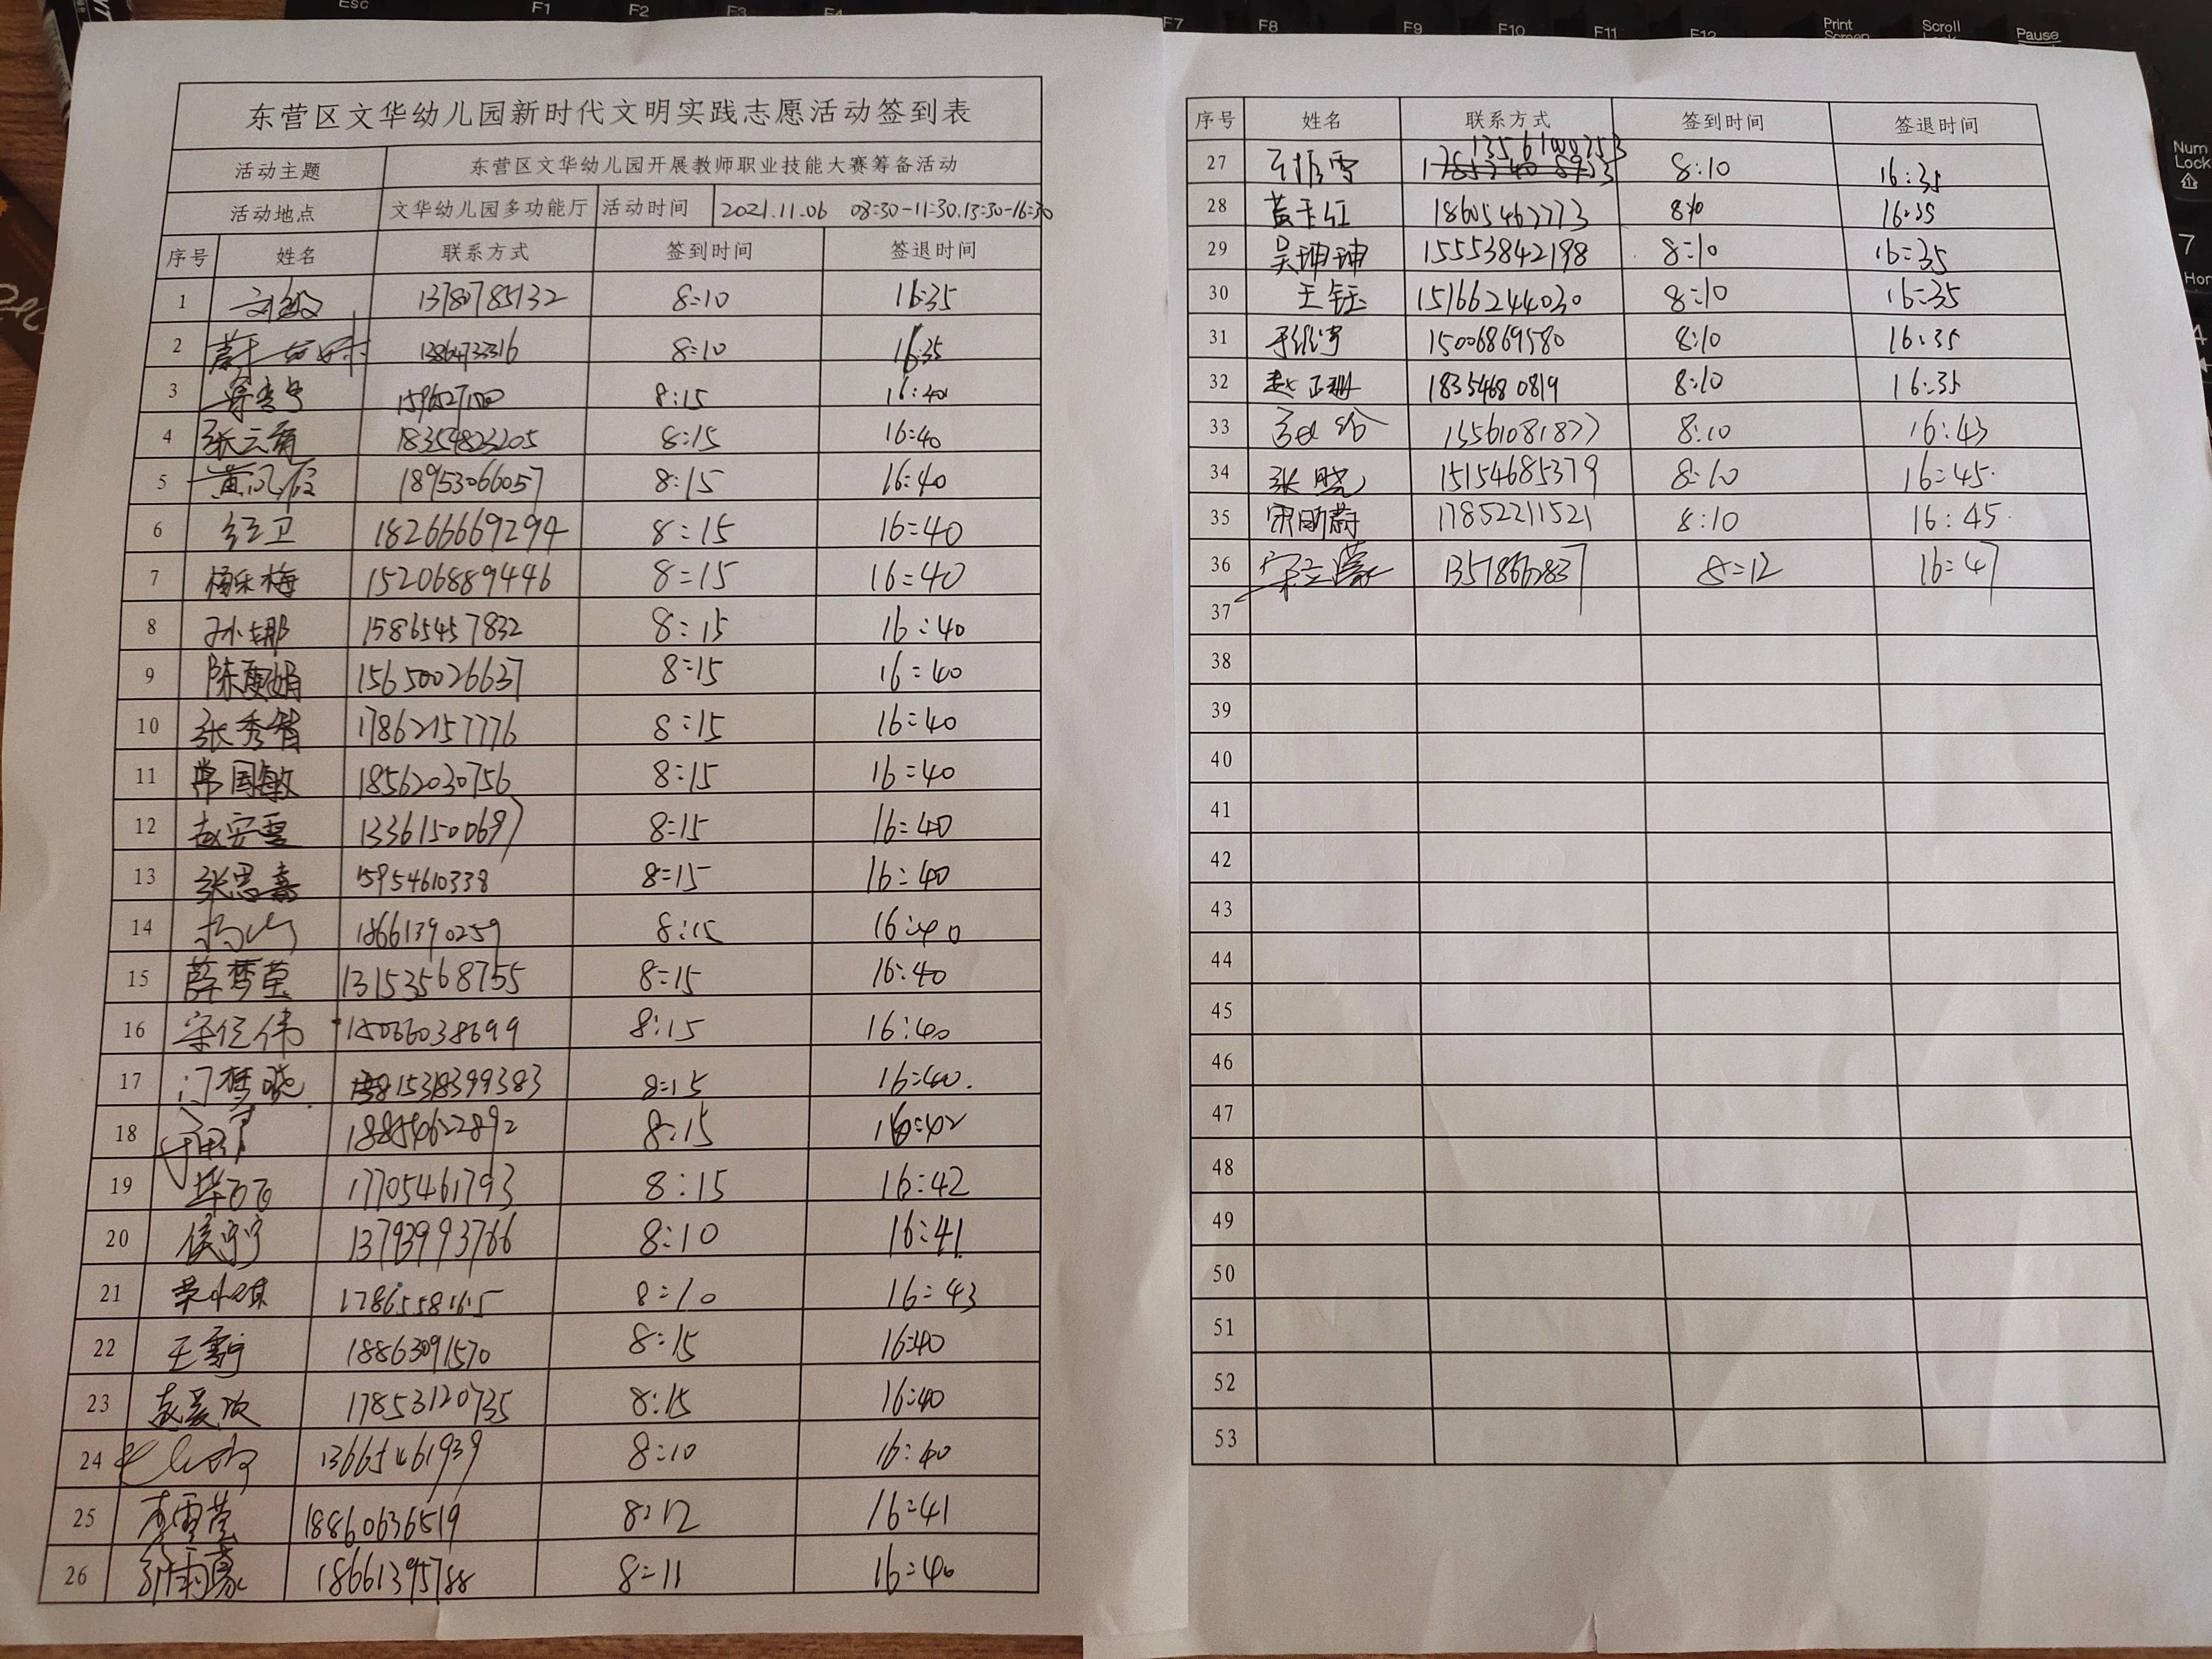 东营区文华幼儿园新时代文明实践志愿活动签到表
活动主题 东营区文华幼儿园开展教师职业技能大赛筹备活动
活动地点 文华幼儿园多功能厅 活动时间 2021.11.06 08:30-11:30.13:30-16:30
序号 姓名 联系方式 签到时间 签退时间
1 刘敏 13780785132 8:10 16:35
2 8:10 16:35
3 8:15 16:40
4 张云霄 18354823205 8:15 16:40
5 18953066057 8:15 16:40
6 18266669294 8:15 16:40
7 杨乐梅 15206889446 8:15 16:40
8 孙娜 15865457832 8:15 16:40
9 陈夏娟 15650026637 8:15 16:40
10 张秀智 17862157776 8:15 16:40
11 常国敏 18562030756 8:15 16:40
12 赵安雪 13361500697 8:15 16:40
13 张思嘉 15954610338 8:15 16:40
14 18661390259 8:15 16:40
15 薛梦莹 13153568755 8:15 16:40
16 15066038699 8:15 16:40
17 门梦晓 15318399383 8:15 16:40.
18 18854622892 8:15 16:42
19 17705461793 8:15 16:42
20 侯宁宁 13793993766 8:10 16:41
21 17865581615 8:10 16:43
22 王雪宁 18863091570 8:15 16:40
23 17853120735 8:15 16:40
24 13665461939 8:10 16:40
25 李雪莹 18860636519 8:12 16:41
26 18661395788 8:11 16:40
序号 姓名 联系方式 签到时间 签退时间
27 8:10 16:35
28 黄玉红 18605462773 8:10 16:35
29 吴珅珅 15553842198 8:10 16:35
30 王钰 15166244030 8:10 16:35
31 15006869580 8:10 16:35
32 赵正珊 18354680819 8:10 16:35
33 15561081877 8:10 16:43
34 张晓 15154685379 8:10 16:45.
35 宋明蔚 17852211521 8:10 16:45.
36 13518662837 8:12 16:47
37
38
39
40
41
42
43
44
45
46
47
48
49
50
51
52
53
Esc F1 F2 F3 F7 F8 F9 F10 F11 F12 Print Screen Scroll Lock Pause
Num Lock
7